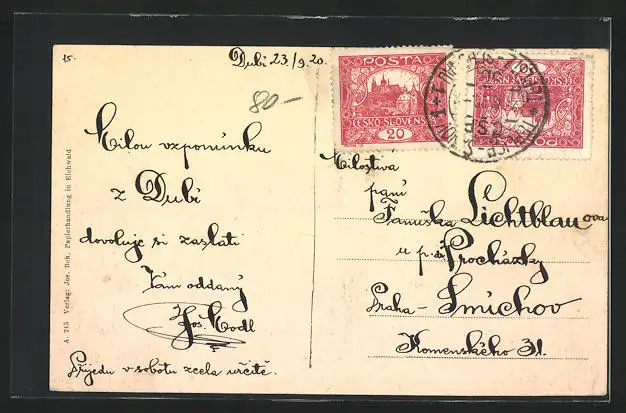 15.
Dubí 23/9 20.
80—
Milou vzpomínku
z Dubí
dovoluje si zaslati
Vám oddaný
Jos. Hodl
Přijedu v sobotu zcela určitě.
A. 215 Verlag: Jos. Roh, Papierhandlung in Eichwald
POSTA
ČESKO-SLOVENSKÁ
20
POSTA
Milostiva
paní
Fanuška Lichtblau ova
u p. dr. Procházky
Praha - Smíchov
Komenského 31.